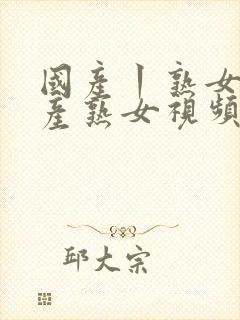 國產丨熟女
產熟女視頻
邱大宗